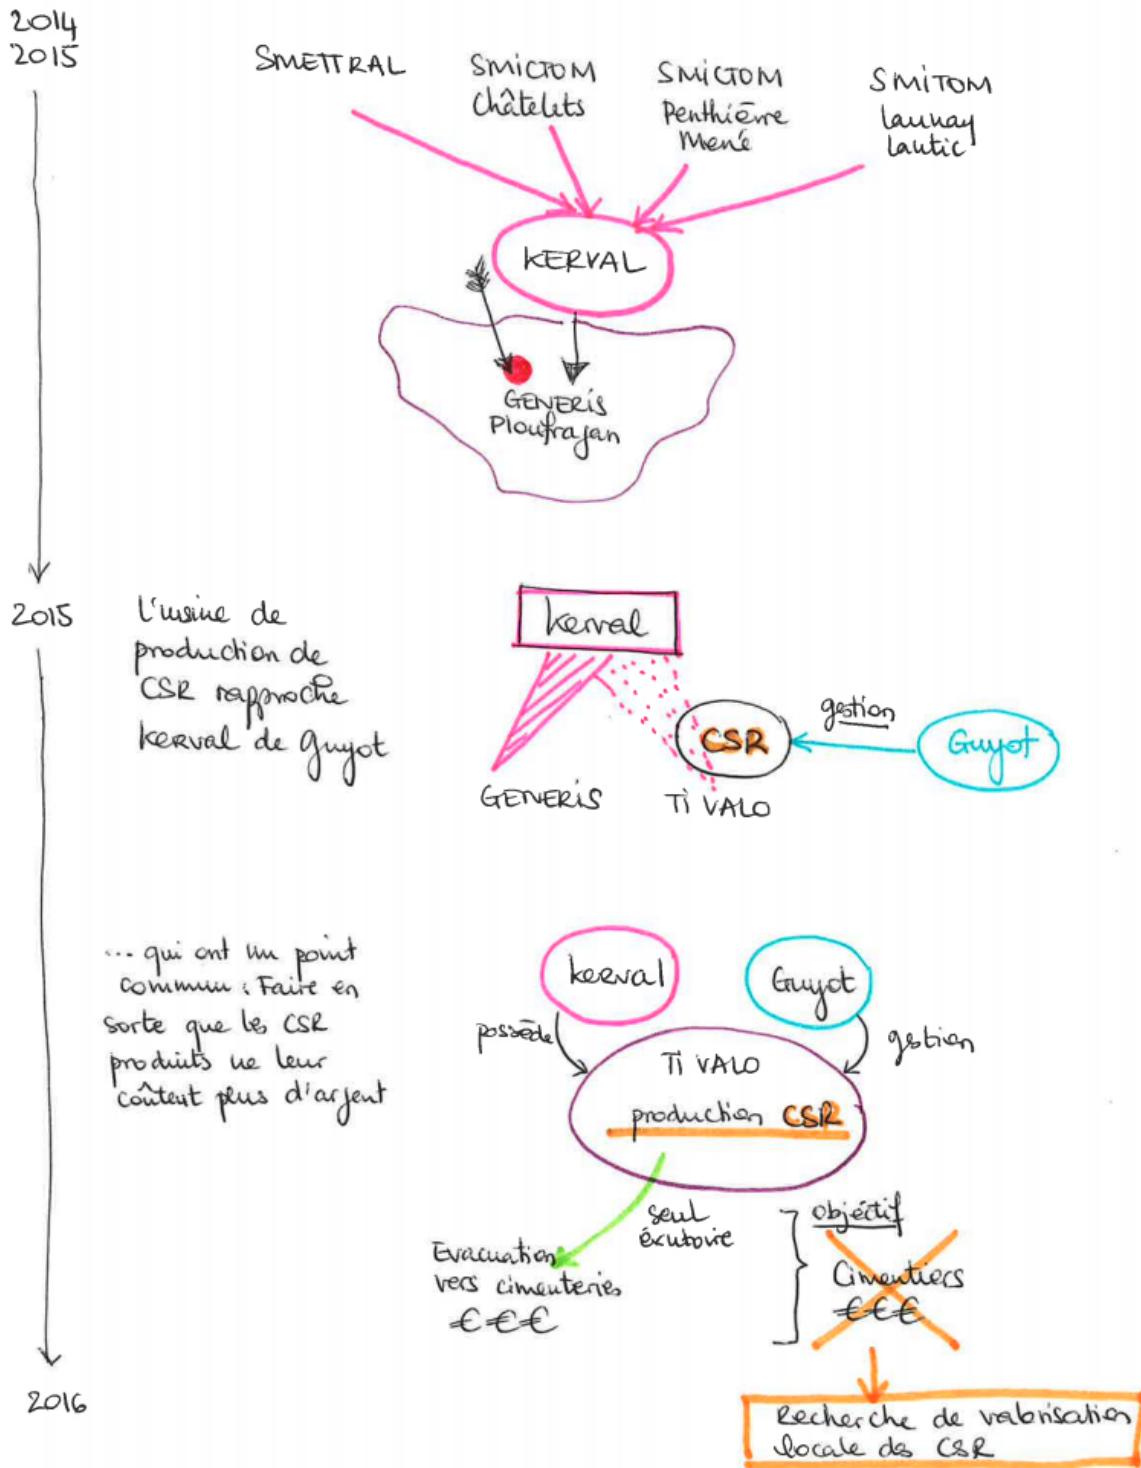 2014
2015
SMETTRAL
SMICTOM
Châtelets
SMICTOM
Penthièvre
Mené
SMITOM
Launay
Lantic
KERVAL
GENERIS
Ploufragan
2015
L'usine de
production de
CSR rapproche
Kerval de Guyot
Kerval
GENERIS
CSR
TI VALO
gestion
Guyot
... qui ont un point
commun : Faire en
sorte que les CSR
produits ne leur
coûtent plus d'argent
Kerval
Guyot
possède
gestion
TI VALO
production CSR
seul
exutoire
Evacuation
vers cimenteries
€€€
objectif
Cimentiers
€€€
2016
Recherche de valorisation
locale des CSR